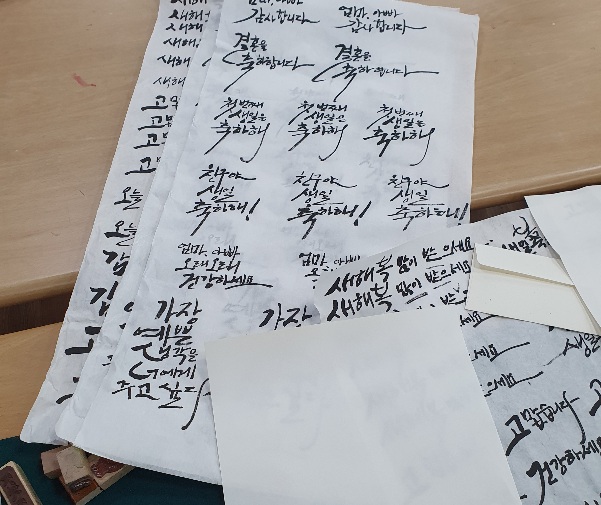 엄마, 아빠
감사합니다
엄마, 아빠
감사합니다
결혼을
축하합니다
결혼을
축하합니다
첫번째
생일을
축하해
첫번째
생일을
축하해
첫번째
생일을
축하해
친구야
생일
축하해!
친구야
생일
축하해!
친구야
생일
축하해!
엄마, 아빠
오래오래
건강하세요
엄마, 아빠
가장
예쁜
생각을
너에게
주고 싶다
가장
새해
새해
새해
새해
새해
오늘
오늘
새해 복 많이 받으세요
새해 복 많이 받으세요
고맙습니다
건강하세요